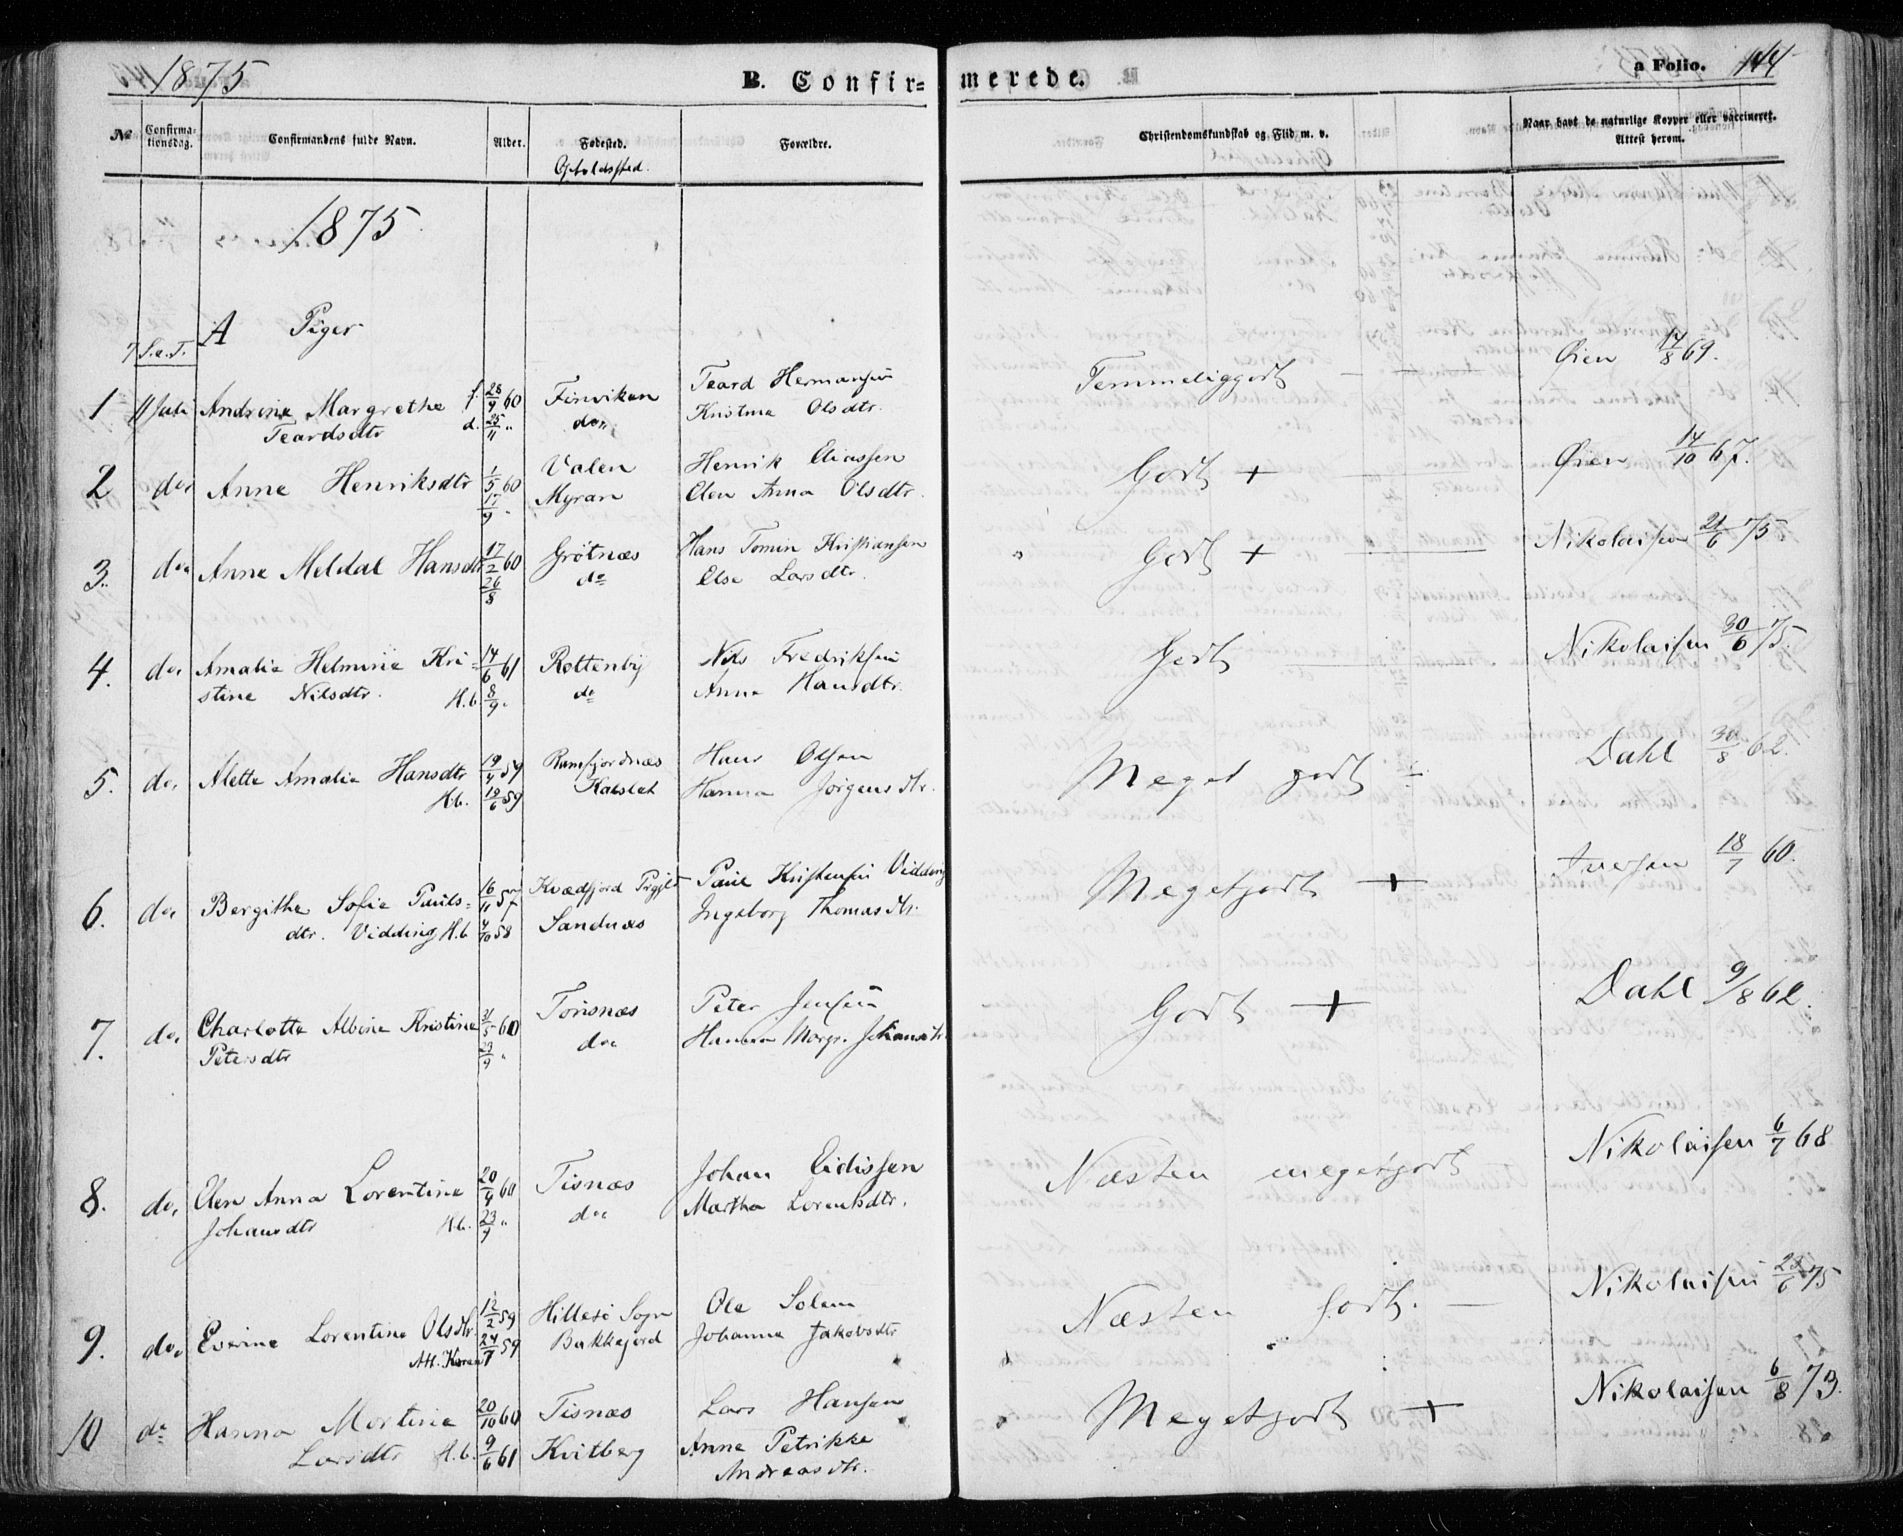 1875 B. Confirmerede. a Folio. 144
No. Confirmationsdag. Confirmandens fulde Navn. Alder. Fødested. Forældre. Christendomskundskab og Flid m. v. Naar havt de naturlige Kopper eller vaccineret. Attest herom.
Opholdssted.
1875.
A Piger
7 S.e.T.
1 11 Juli Andrine Margrethe f. 28/9 60 Finviken Teard Hermansen Temmeliggodt — Øien 17/8 69.
Teardsdtr d. 25/11 " do Kristine Olsdtr.
2 do Anne Henriksdtr 1/5 60 Valen Henrik Eliassen Godt + Øien 14/10 67.
17/9 " Myran Elen Anna Olsdtr.
3. do Anne Meldal Hansdtr 17/2 60 Grøtnæs Hans Tomin Kristiansen Godt + Nikolaisen 21/6 75
26/8 do Else Larsdtr.
4. do. Amalie Helmine Kri- 14/6 61 Rottenby Nils Fredriksen Godt Nikolaisen 30/6 75.
stine Nilsdtr. H.b. 8/9 " do Anne Hansdtr.
5. do. Alette Amalie Hansdtr 19/4 59 Ramfjordnæs Hans Olsen Meget godt Dahl 30/8 62.
H.b. 19/6 59 Kalslet Hanna Jørgensdtr.
6. do. Bergithe Sofie Pauls- 16/11 57 Kvædfjord Prgjld Paul Kristensen Vidding Megetgodt + Iversen 18/7 60.
dtr. Vidding H.b. 4/10 58 Sandnæs Ingeborg Thomasdtr.
7. do. Charlotte Albine Kristine 31/5 60 Torsnæs Peter Jensen Godt + Dahl 9/8 62.
Petersdtr 29/9 " do Hanna Margr. Johansdtr.
8. do. Elen Anna Lorentine 20/4 60 Tisnæs Johan Eidissen Næsten megetgodt Nikolaisen 6/7 68
Johansdtr H.b. 23/9 " do Martha Lorentsdtr.
9. do. Everine Lorentine Olsdtr. 12/2 59 Hillesø Sogn Ole Solem Næsten godt. — Nikolaisen 28/6 75
Att. 24/7 59 Bakkejord Johanna Jakobsdtr
10 do Hanna Mortine 20/10 60 Tisnæs Lars Hansen Megetgodt + Nikolaisen 6/8 73.
Larsdtr H.b. 9/6 61 Kvitberg Anne Petrikke
Andreasdtr.